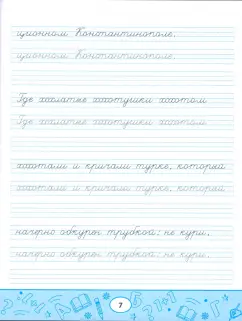 ционном Константинополе.
ционном Константинополе.
Где хохлатые хохотушки хохотом
Где хохлатые хохотушки хохотом
хохотали и кричали турке, который
хохотали и кричали турке, который
начерно обкурен трубкой: не кури,
начерно обкурен трубкой: не кури,
7